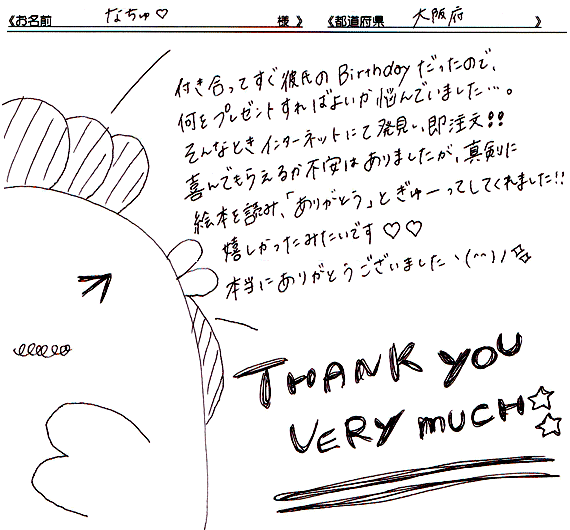 《お名前 なちゅ♡ 様 》 《都道府県 大阪府 》
付き合ってすぐ彼氏のBirthdayだったので、
何をプレゼントすればよいか悩んでいました…。
そんなときインターネットにて発見し、即注文!!
喜んでもらえるか不安はありましたが、真剣に
絵本を読み、「ありがとう」とぎゅーってしてくれました!!
嬉しかったみたいです♡♡
本当にありがとうございました丶(^^)ノ☆
THANK YOU
VERY MUCH☆☆